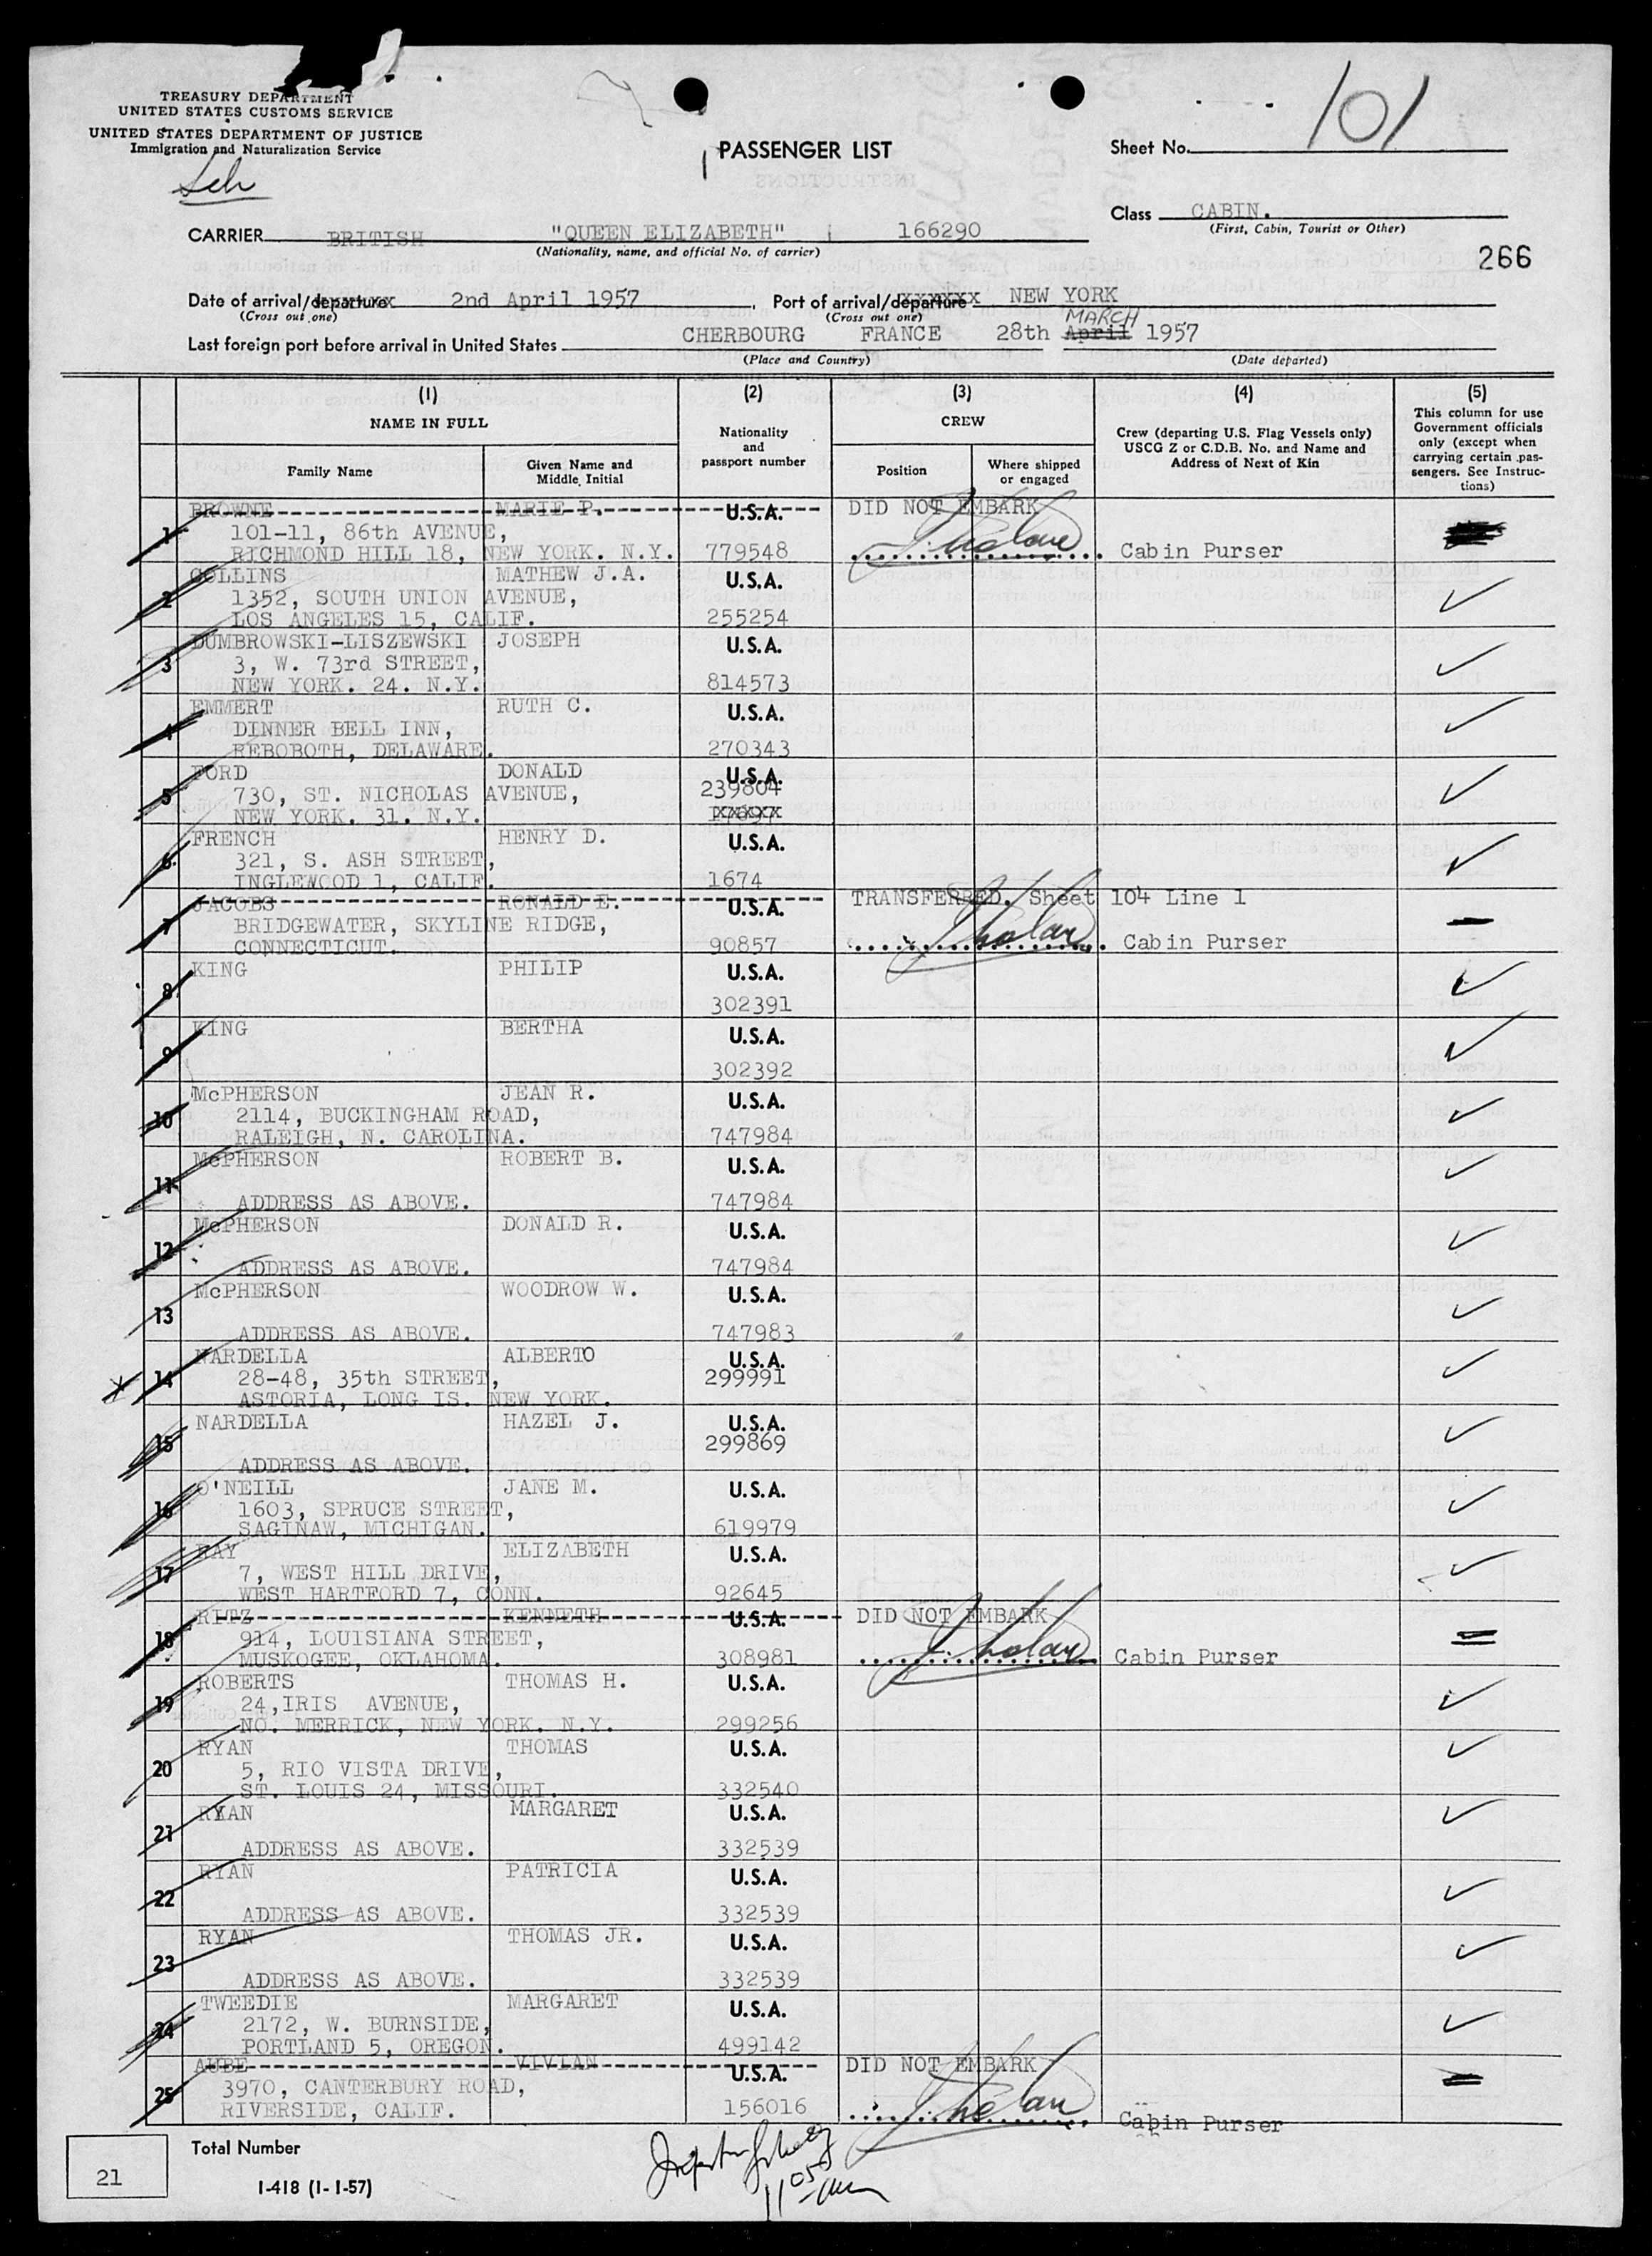 TREASURY DEPARTMENT
UNITED STATES CUSTOMS SERVICE
UNITED STATES DEPARTMENT OF JUSTICE
Immigration and Naturalization Service
PASSENGER LIST
Sheet No. 101
Class CABIN.
(First, Cabin, Tourist or Other)
CARRIER BRITISH "QUEEN ELIZABETH" 166290
(Nationality, name, and official No. of carrier)
266
Date of arrival/departure 2nd April 1957 Port of arrival/departure NEW YORK
(Cross out one) (Cross out one)
MARCH
Last foreign port before arrival in United States CHERBOURG FRANCE 28th April 1957
(Place and Country) (Date departed)
(1) (2) (3) (4) (5)
NAME IN FULL Nationality and passport number CREW Crew (departing U.S. Flag Vessels only) USCG Z or C.D.B. No. and Name and Address of Next of Kin This column for use Government officials only (except when carrying certain pas-sengers. See Instruc-tions)
Family Name Given Name and Middle Initial Position Where shipped or engaged
BROWNE MARIE P. U.S.A. DID NOT EMBARK
1 101-11, 86th AVENUE,
RICHMOND HILL 18, NEW YORK. N.Y. 779548 Cabin Purser
COLLINS MATHEW J.A. U.S.A.
2 1352, SOUTH UNION AVENUE,
LOS ANGELES 15, CALIF. 255254
DUMBROWSKI-LISZEWSKI JOSEPH U.S.A.
3 3, W. 73rd STREET,
NEW YORK. 24. N.Y. 814573
EMMERT RUTH C. U.S.A.
4 DINNER BELL INN,
REBOBOTH, DELAWARE. 270343
FORD DONALD U.S.A.
5 730, ST. NICHOLAS AVENUE, 239804
NEW YORK. 31. N.Y.
FRENCH HENRY D. U.S.A.
6 321, S. ASH STREET,
INGLEWOOD 1, CALIF. 1674
JACOBS RONALD E. U.S.A. TRANSFERRED. Sheet 104 Line 1
7 BRIDGEWATER, SKYLINE RIDGE,
CONNECTICUT. 90857 Cabin Purser
KING PHILIP U.S.A.
8 302391
KING BERTHA U.S.A.
9 302392
McPHERSON JEAN R. U.S.A.
10 2114, BUCKINGHAM ROAD,
RALEIGH, N. CAROLINA. 747984
McPHERSON ROBERT B. U.S.A.
11 ADDRESS AS ABOVE. 747984
McPHERSON DONALD R. U.S.A.
12 ADDRESS AS ABOVE. 747984
McPHERSON WOODROW W. U.S.A.
13 ADDRESS AS ABOVE. 747983
NARDELLA ALBERTO U.S.A.
14 28-48, 35th STREET, 299991
ASTORIA, LONG IS. NEW YORK.
NARDELLA HAZEL J. U.S.A.
15 299869
ADDRESS AS ABOVE.
O'NEILL JANE M. U.S.A.
16 1603, SPRUCE STREET,
SAGINAW, MICHIGAN. 619979
RAY ELIZABETH U.S.A.
17 7, WEST HILL DRIVE,
WEST HARTFORD 7, CONN. 92645
RITZ KENNETH U.S.A. DID NOT EMBARK
18 914, LOUISIANA STREET,
MUSKOGEE, OKLAHOMA. 308981 Cabin Purser
ROBERTS THOMAS H. U.S.A.
19 24,IRIS AVENUE,
NO. MERRICK, NEW YORK. N.Y. 299256
RYAN THOMAS U.S.A.
20 5, RIO VISTA DRIVE,
ST. LOUIS 24, MISSOURI. 332540
RYAN MARGARET U.S.A.
21 ADDRESS AS ABOVE. 332539
RYAN PATRICIA U.S.A.
22 ADDRESS AS ABOVE. 332539
RYAN THOMAS JR. U.S.A.
23 ADDRESS AS ABOVE. 332539
TWEEDIE MARGARET U.S.A.
24 2172, W. BURNSIDE,
PORTLAND 5, OREGON. 499142
AUBE VIVIAN U.S.A. DID NOT EMBARK
25 3970, CANTERBURY ROAD,
RIVERSIDE, CALIF. 156016 Cabin Purser
Total Number
21
I-418 (1-1-57)